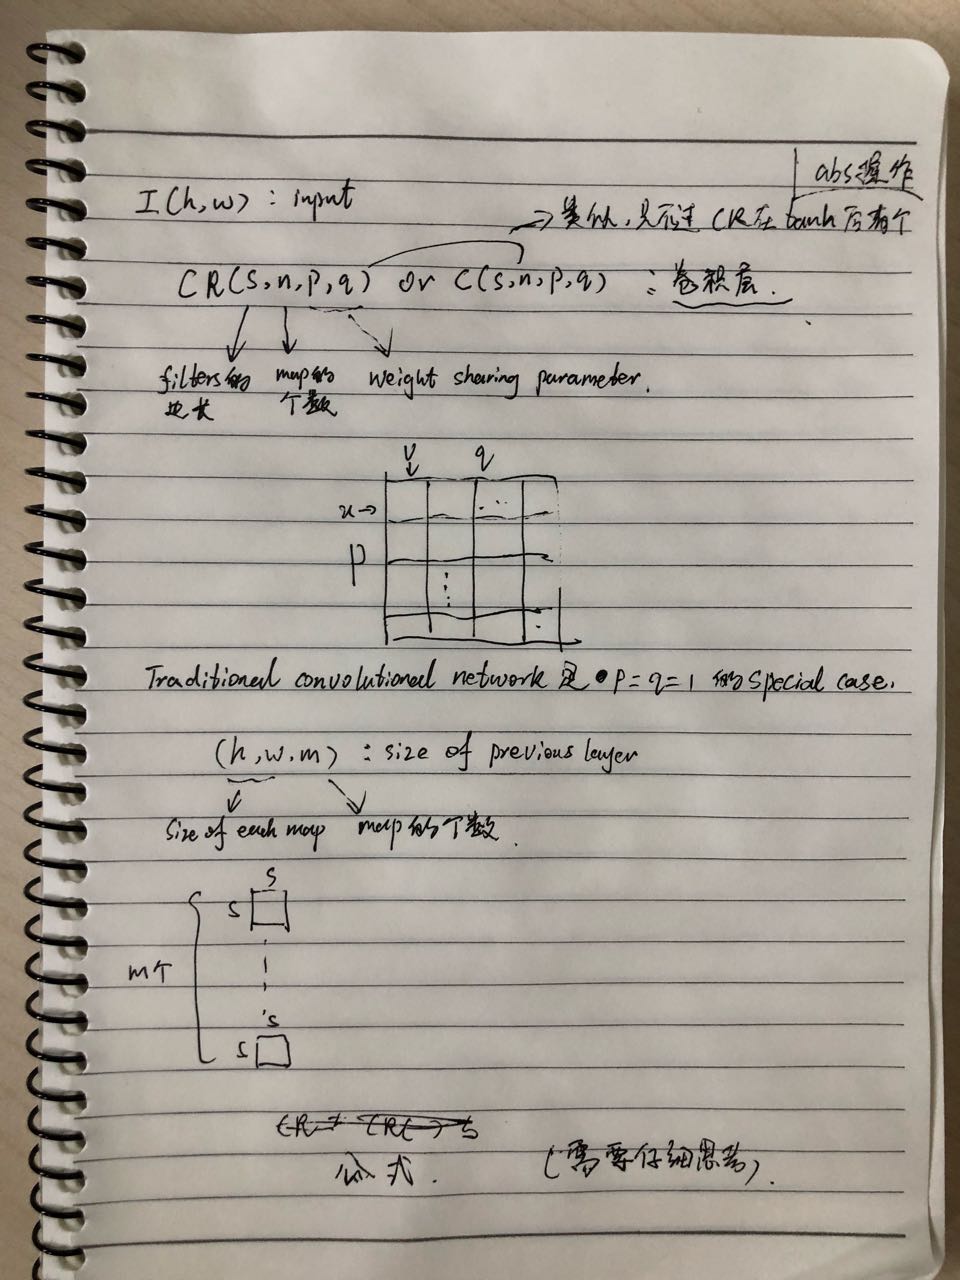 abs操作
I(h,w) : input
→ 类似,只不过 CR在tanh后有个
CR(s,n,p,q) or C(s,n,p,q) : 卷积层.
filters的 map的 weight sharing parameter.
边长 个数
v q
u→
p
Traditional convolutional network 是 p=q=1 的special case.
(h,w,m) : size of previous layer
size of each map map的个数.
s
s
m个
s
s
公式. (需要仔细思考).